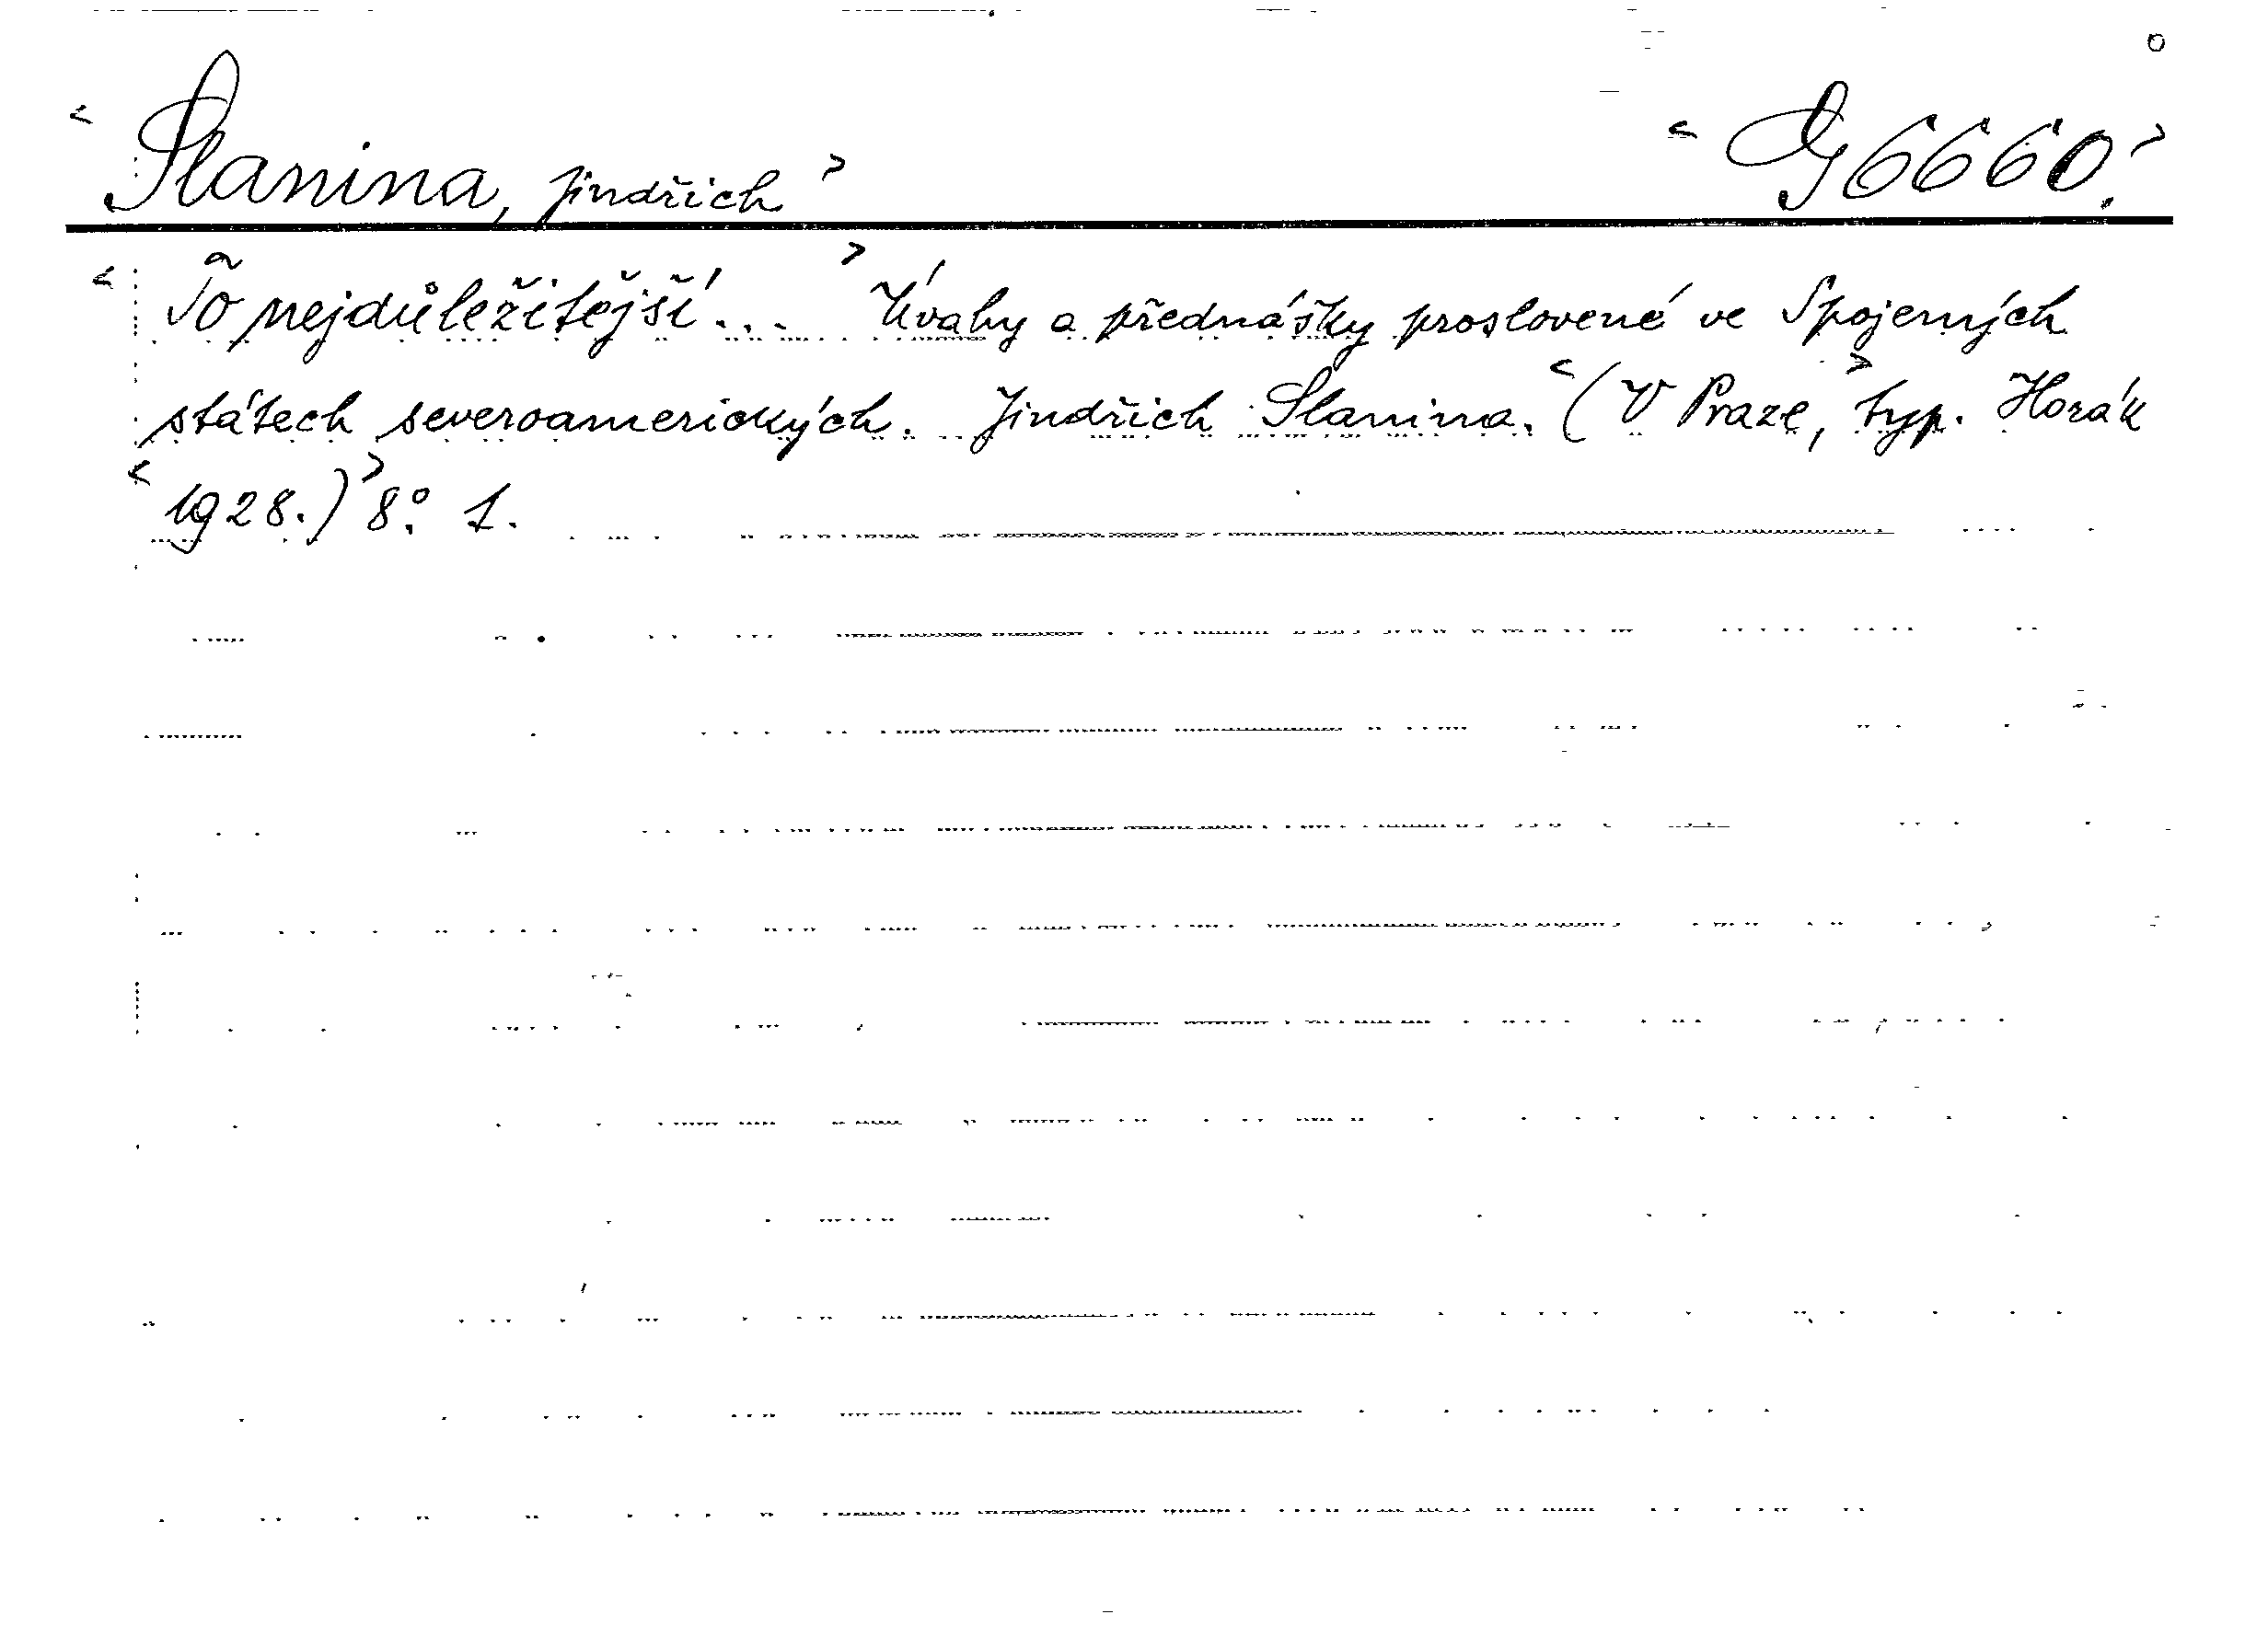 < Slanina, Jindřich > < G 6660. >
< To nejdůležitější... > Úvahy a přednášky proslovené ve Spojených
státech severoamerických. Jindřich Slanina. < (V Praze, > typ. Horák
< 1928.) > 8°. 1.